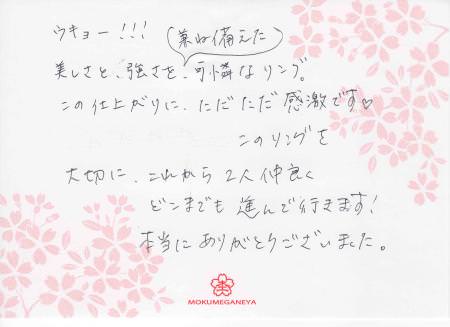 ウキョー!!!
(兼ね備えた)
美しさと、強さを、可憐なリング。
この仕上がりに、ただただ感激です♡
このリングを
大切に、これから2人仲良く
どこまでも進んで行きます!
本当にありがとうございました。
MOKUMEGANEYA